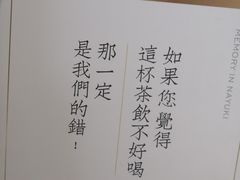 MEMORY IN NAYUKI
如果您覺得
這杯茶飲不好喝
那一定
是我們的錯！